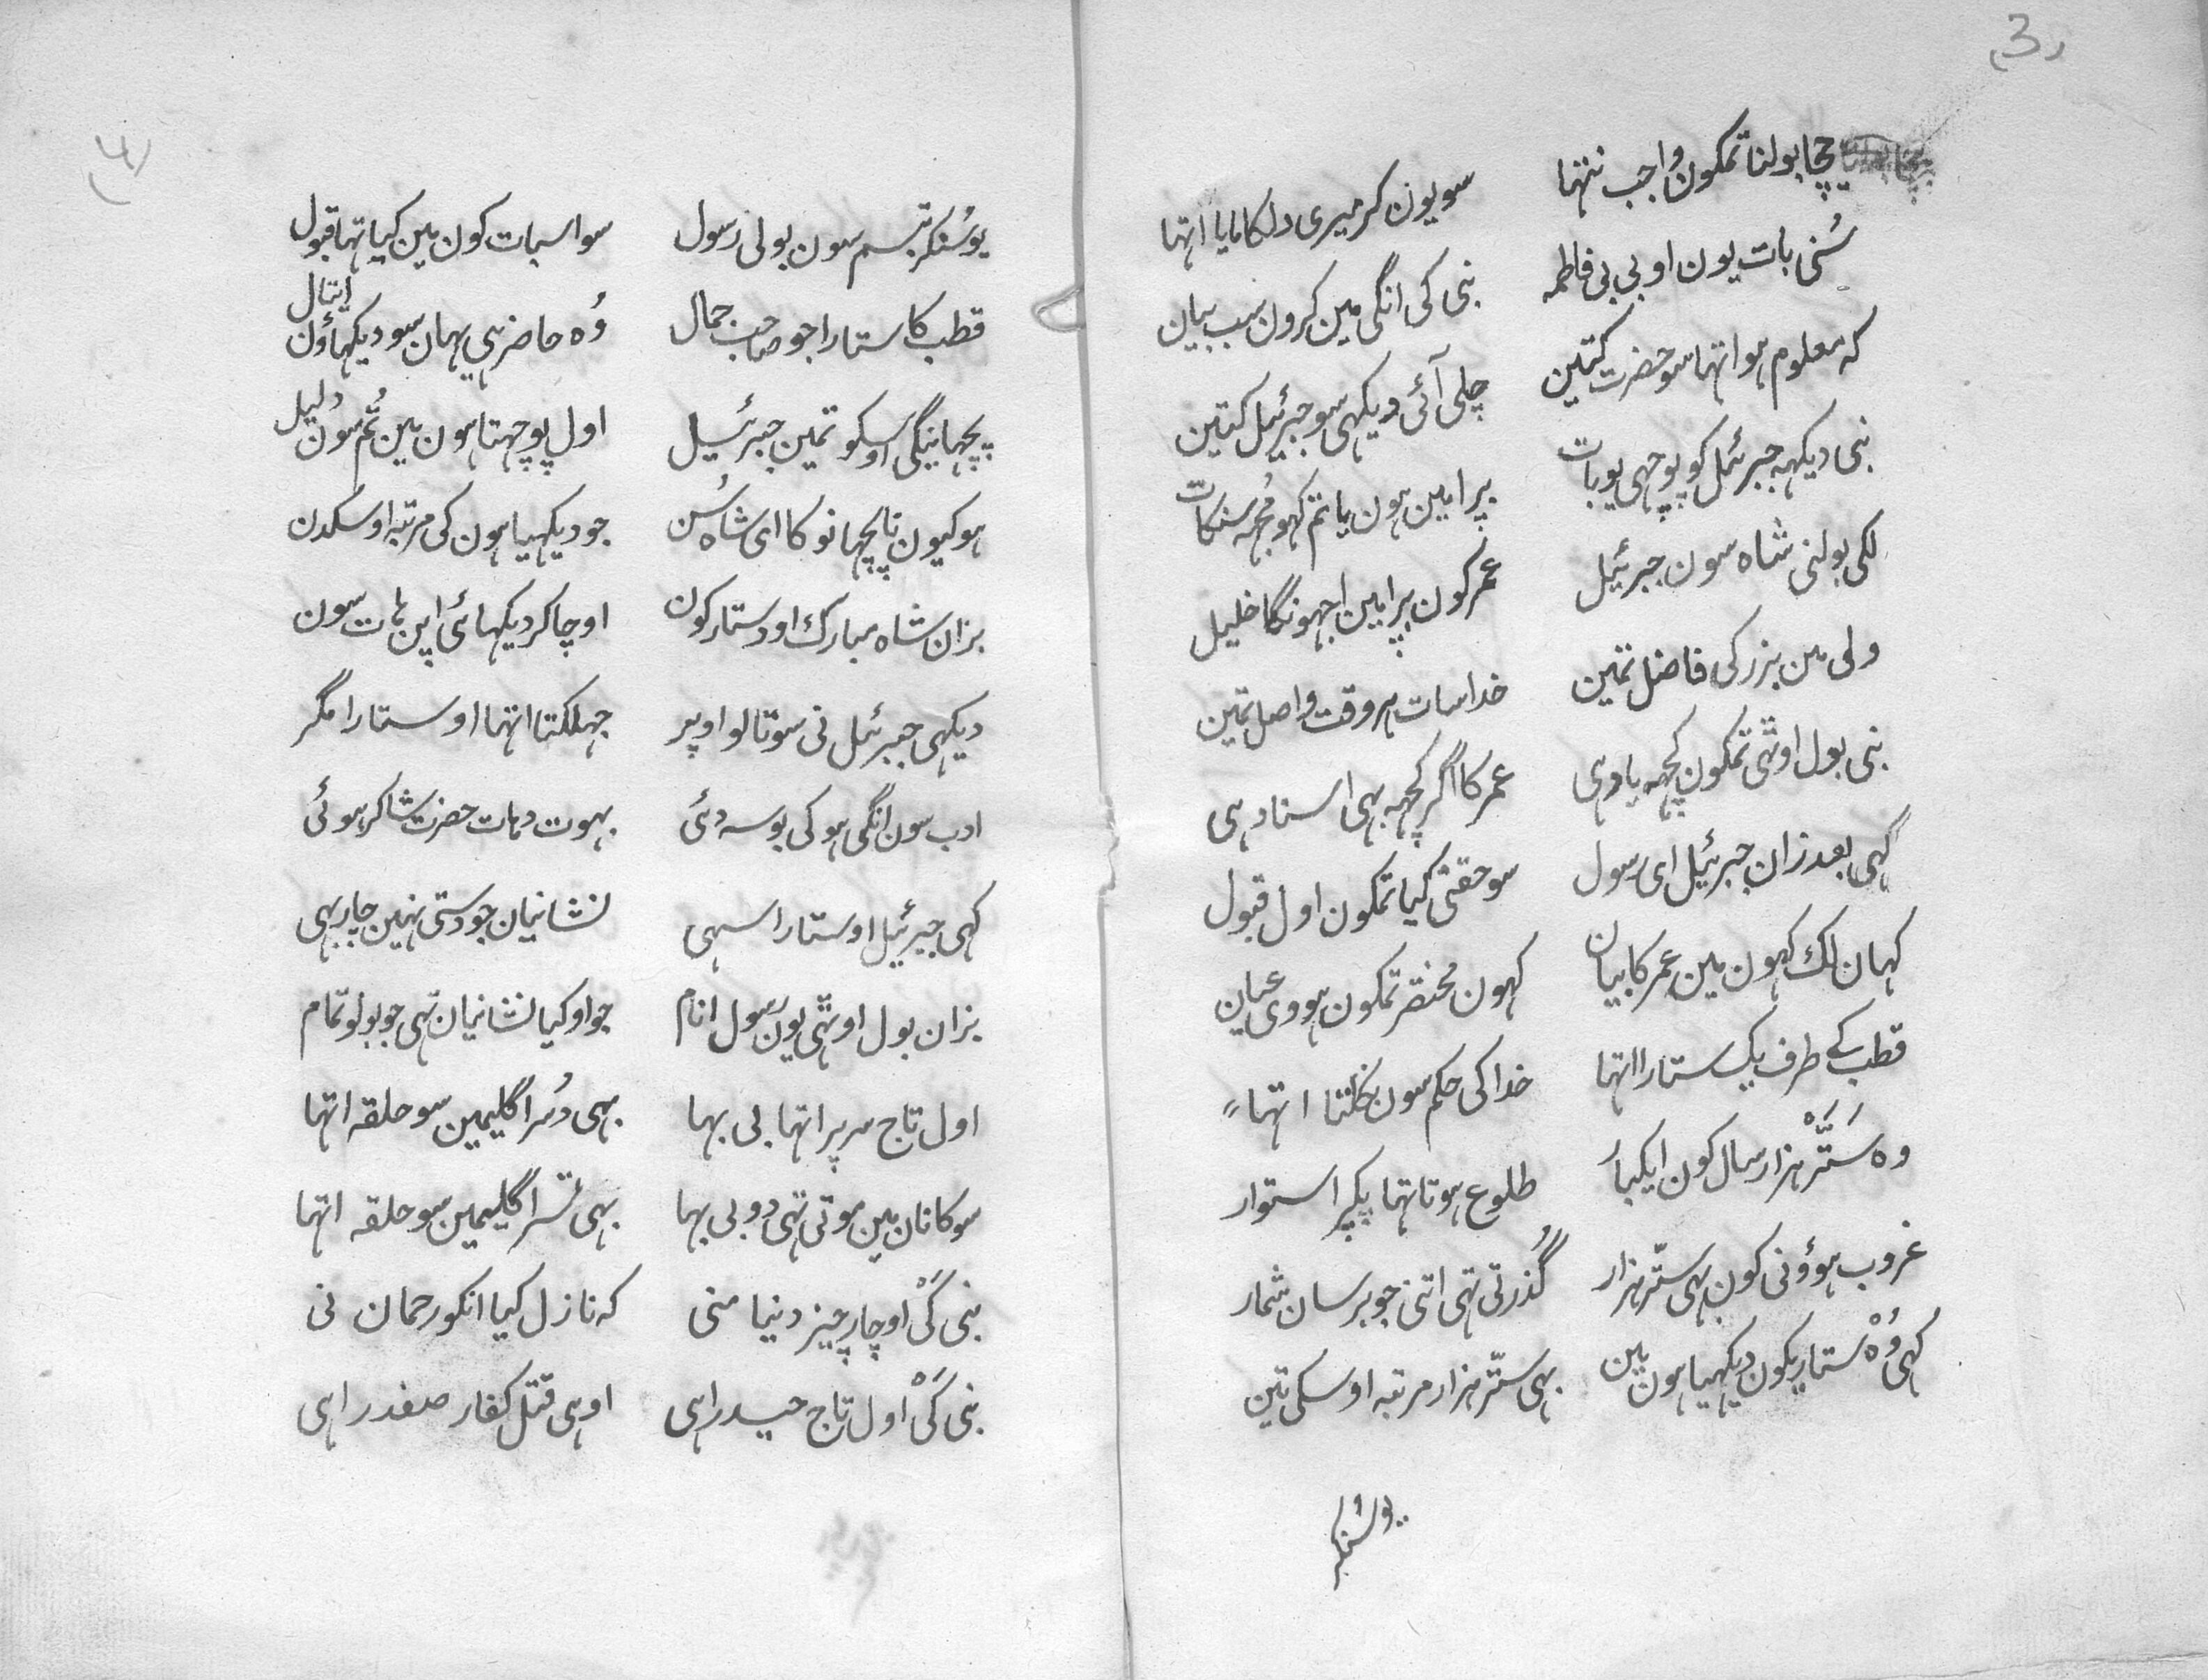 3
چچا بولنا تمکون واجب نتہا سو یون کر میری دلکا مایا اتہا
سُنی بات یون او بی بی فاطمہ نبی کی انگی مین کرون سب بیان
کہ معلوم ہوا تہا سو حضرت کتین چلی آئی دیکہی سو جبرئیل کتین
نبی دیکہہ جبرئیل کو پوچہی یو بات پرا مین ہون یا تم کہو مجہہ سنکات
لگی بولنی شاہ سون جبرئیل عمر کون پرا مین اجہونگا خلیل
ولی من بزرکی فاضل تمین خدا سات ہر وقت واصل تمین
نبی بول اوٹہی تمکون کچہہ یاد ہی عمر کا اگر کچہہ بہی اسناد ہی
کہی بعد زان جبرئیل ای رسول سو حقنی کیا تمکون اول قبول
کہان لک کہون مین عمر کا بیان کہون مختصر تمکون ہووی عیان
قطب کے طرف یک ستارا اتہا خدا کی حکم سون نکلتا اتہا
وہ ستّر ہزار سال کون ایکبار طلوع ہوتا تہا پکیر استوار
غروب ہوؤنی کون بہی ستّر ہزار گُذرتی تہی اتنی جو برسان شمار
کہی وُہ ستاریکون دیکہیا ہون مین بہی ستّر ہزار مرتبہ اوسکی تین
یو سُنکر
4
یو سُنکر تبسم سون بولی رسول سو اسبات کون مین کیا تہا قبول
قطب کا ستارا جو صاحب جمال وُہ حاضر ہی یہان سو دیکہاؤن اتال
پچہانینگی اوسکو تمین جبرئیل اول پوچہتا ہون مین تُم سون دلیل
ہو کیون ناپچہانو کا ای شاہ سُن جو دیکہیا ہون کی مرتبہ اوسکدن
بزان شاہ مبارک او دستار کون اوچا کر دیکہائی اپن ہات سون
دیکہی جبرئیل نی سو تالو اوپر جہلکتا اتہا او ستارا مگر
ادب سون انگی ہو کی بوسہ دئی بہوت دہات حضرت شاکر ہوئی
کہی جبرئیل او ستارا سہی نشانیان جو دستی نہین چار بہی
بزان بول اوٹہی یون رسول انام جو او کیا نشانیان تہی جو بولو تمام
اول تاج سر پر اتہا بی بہا بہی دُسرا گلیمین سو حلقہ اتہا
سو کانان مین موتی تہی دو بی بہا بہی تسرا گلیمین سو حلقہ اتہا
نبی کَیْ او چار چیز دنیا منی کہ نازل کیا انکو رحمان نی
نبی کَیْ اول تاج حیدر اہی او ہی قتل کفار صفدر اہی